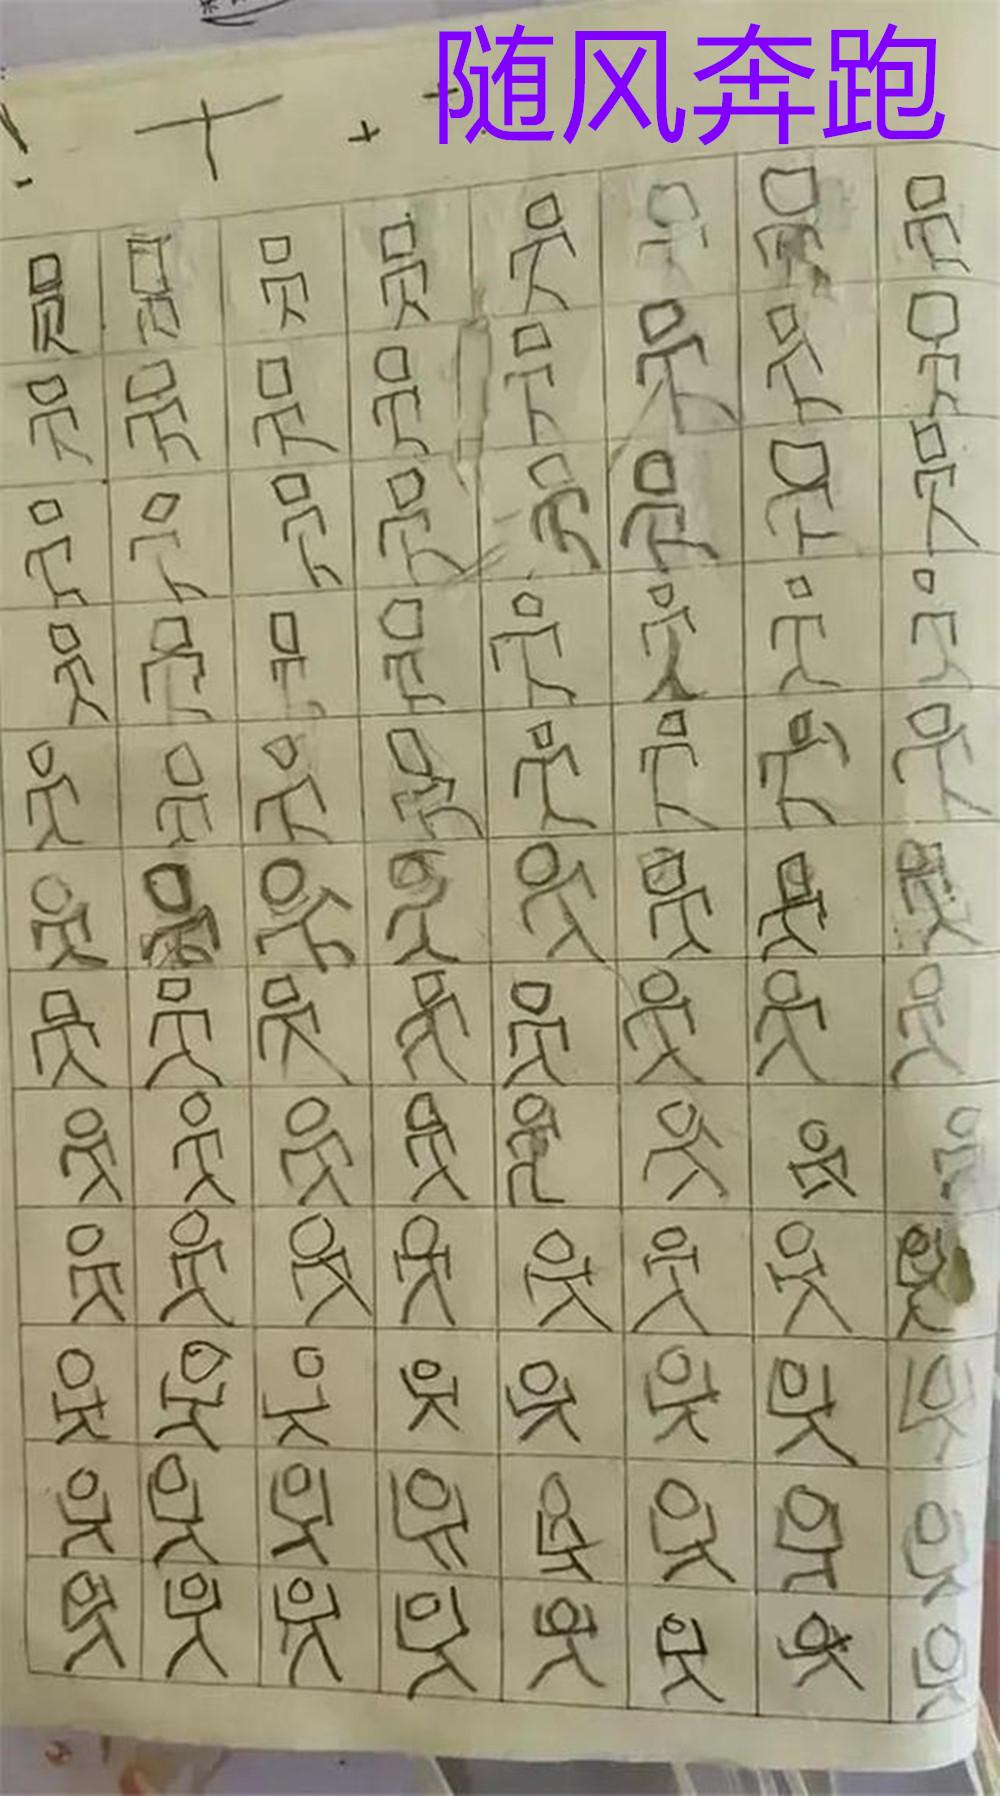 随风奔跑